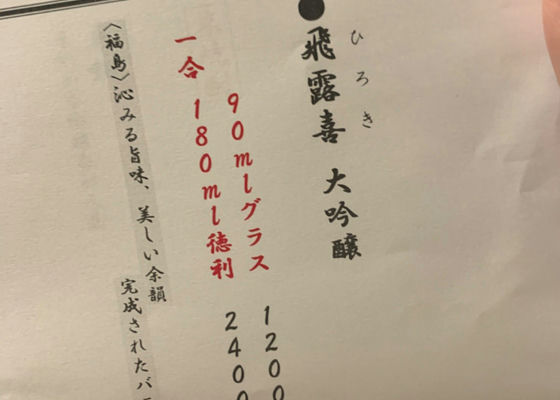 ●飛露喜 大吟醸
ひろき
90mlグラス 1200
一合 180ml徳利 2400
〈福島〉沁みる旨味、美しい余韻
完成されたバ